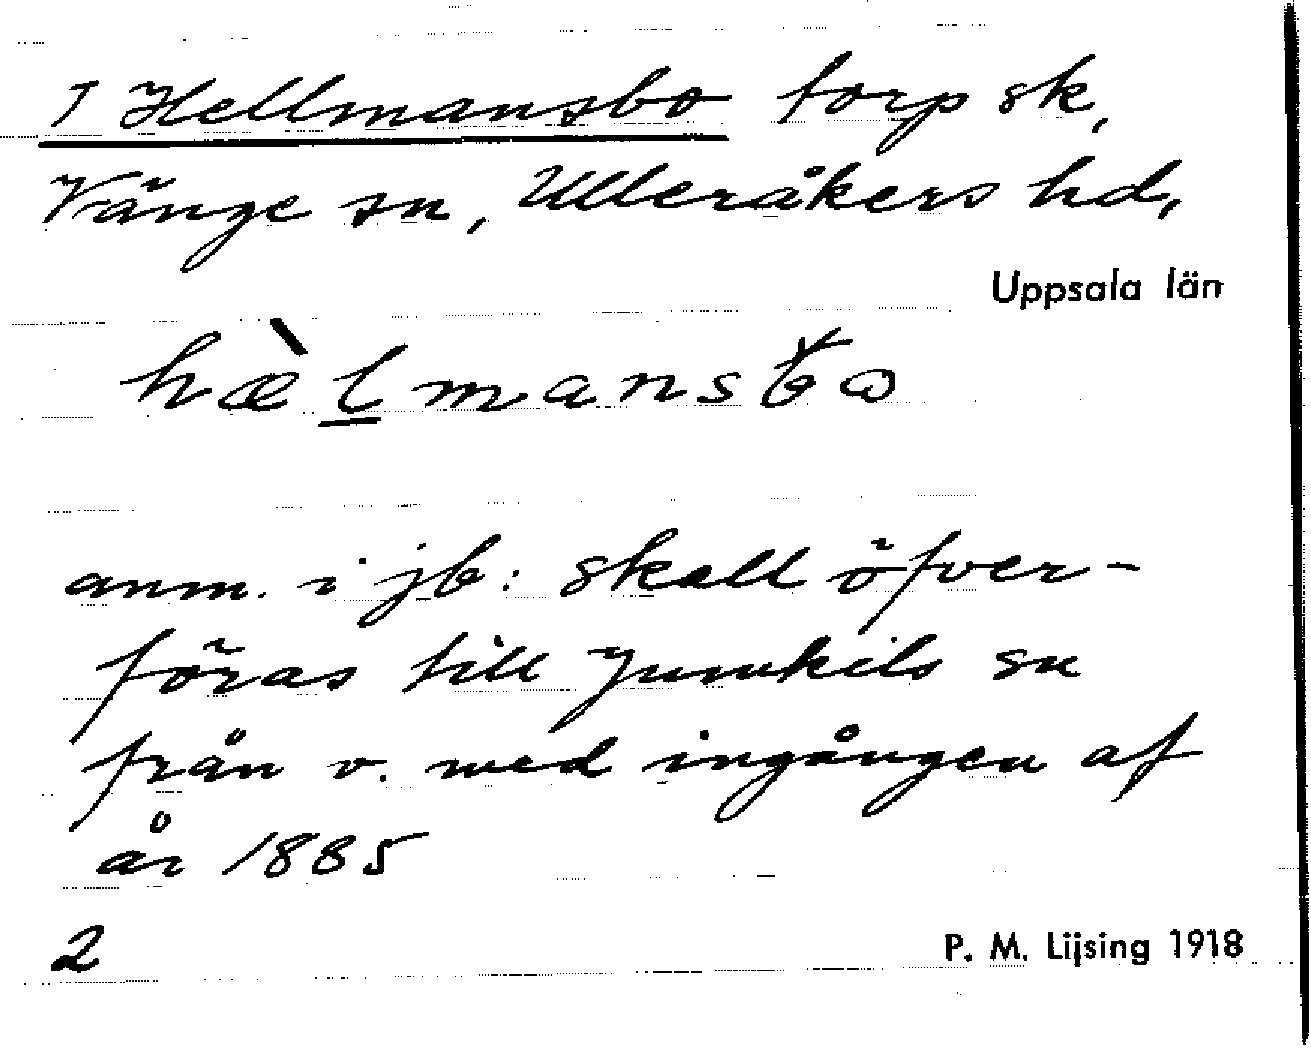 1 Hellmansbo torp sk,
Vänge sn, Ulleråkers hd,
Uppsala län
hæ̀l̲mansbo
anm. i jb: skall öfver-
föras till Jumkils sn
från o. med ingången af
år 1885
2
P. M. Lijsing 1918